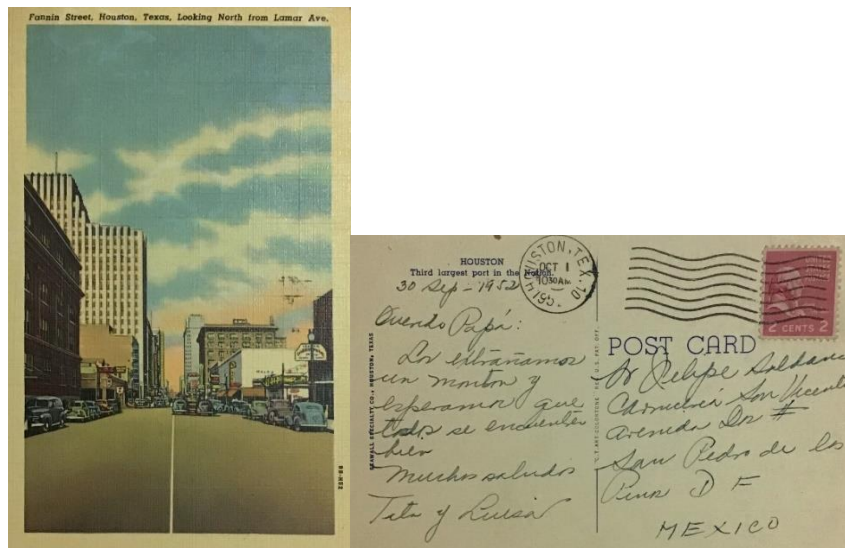 Fannin Street, Houston, Texas, Looking North from Lamar Ave.
HOUSTON
Third largest port in the Nation.
HOUSTON, TEX. 10
OCT 1
10 30 AM
195
30 Sep - 1952
Querido Papá:
Los extrañamos
un monton y
esperamos que
todos se encuentren
bien
Muchos saludos
Tita y Luisa
SEAWALL SPECIALTY CO., HOUSTON, TEXAS
2 CENTS 2
POST CARD
Sr Felipe Saldana
Carniceria San Vicente
Avenida Dos #
San Pedro de los
Pinos D F
MEXICO